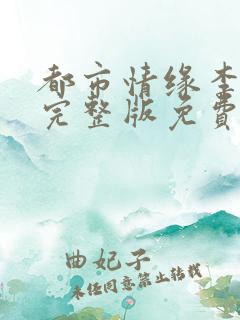 都市情缘李
完整版免费
曲妃子
未经同意禁止转载